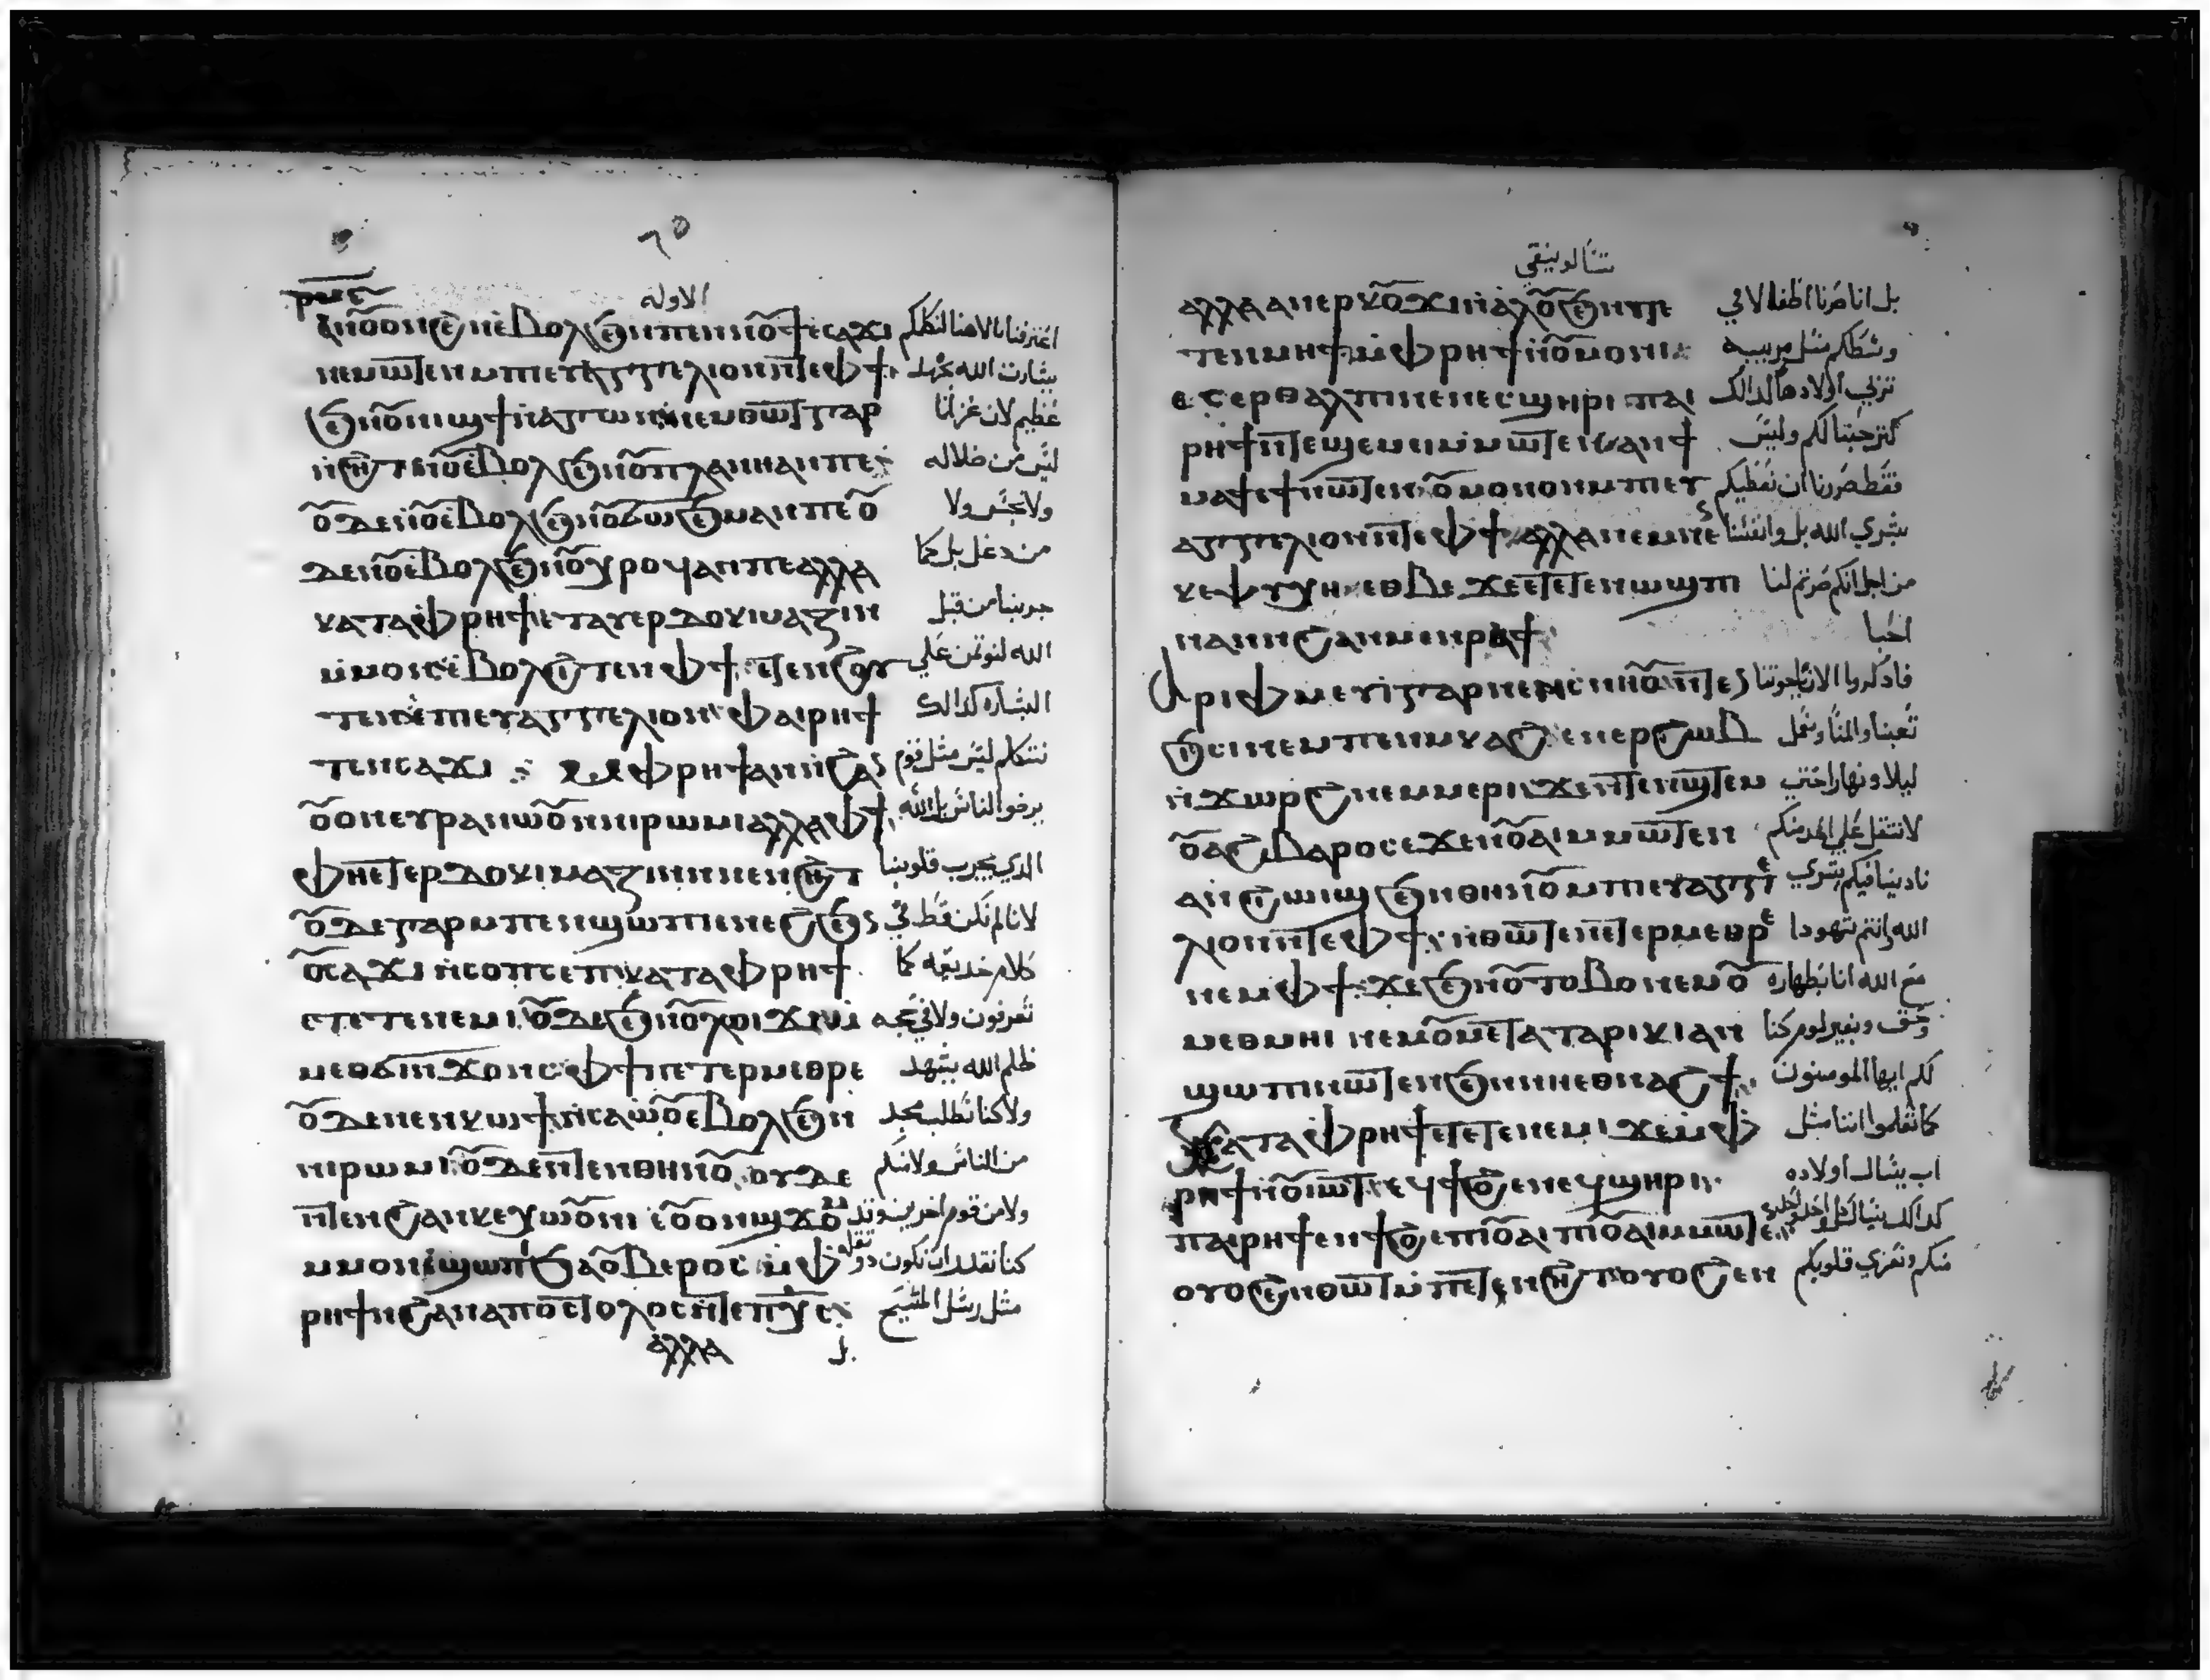 ٦٥
الاوله
ⲛ̀ⲟ̅ⲟⲛϩ̀ ⲛ̀ⲉⲃⲟⲗ ϧⲉⲛ ⲡⲉⲛⲛⲟ̅ϯ ⲉⲥⲁϫⲓ
ⲛⲉⲙⲱ̅ⲧⲉⲛ ⲙⲡⲉⲩⲁⲅⲅⲉⲗⲓⲟⲛ ⲛ̅ⲧⲉ ⲫϯ بشارت الله بجهاد
ϧⲉⲛ ⲟ̅ⲛⲓϣϯ ⲛⲁⲅⲱⲛ ⲡⲉⲛⲑⲱ̅ⲧ ⲅⲁⲣ عظيم لان عزانا
ⲛ̀ϩⲏⲧ ⲛⲟ̅ⲉⲃⲟⲗ ϧⲉⲛ ⲟ̅ⲡⲗⲁⲛⲏ ⲁⲛ ⲡⲉ ليس من ضلاله
ⲟ̅ⲇⲉ ⲛⲟ̅ⲉⲃⲟⲗ ϧⲉⲛ ⲟ̅ϭⲱϧⲉⲙ ⲁⲛ ⲡⲉ ⲟ̅ ولا نجس ولا
ⲇⲉ ⲛⲟ̅ⲉⲃⲟⲗ ϧⲉⲛ ⲟ̅ⲭⲣⲟϥ ⲁⲛ ⲡⲉ ⲁⲗⲗⲁ من دغل بل كما
ⲕⲁⲧⲁ ⲫⲣⲏϯ ⲉⲧⲁⲩⲉⲣⲇⲟⲕⲓⲙⲁⲍⲓⲛ جربنا من قبل
ⲙ̀ⲙⲟⲛ ⲉⲃⲟⲗ ϩⲓⲧⲉⲛ ⲫϯ ⲉ̅ⲧⲉⲛϩⲟⲩ الله لنوتمن علي
ⲧⲉⲛ ⲉⲡⲉⲩⲁⲅⲅⲉⲗⲓⲟⲛ ⲫⲁⲓⲣⲏϯ البشاره كذالك
ⲧⲉⲛⲥⲁϫⲓ ⲙⲫⲣⲏϯ ⲁⲛ ⲛ̀ϩⲁ نتكلم ليس مثل قوم
ⲟ̅ⲟⲛ ⲉⲩⲣⲁⲛⲱⲟ̅ ⲛⲛⲓⲣⲱⲙⲓ ⲁⲗⲗⲁ ⲫϯ يرضوا الناس بل الله
ⲫⲏⲉ̅ⲧⲉⲣⲇⲟⲕⲓⲙⲁⲍⲓⲛ ⲛⲛⲉⲛϩⲏⲧ الذي يجرب قلوبنا
ⲟ̅ⲇⲉ ⲅⲁⲣ ⲙⲡⲉⲛϣⲱⲡⲓ ⲛⲉϩ ϧⲉ لانا لم نكن قط في
ⲟ̅ⲥⲁϫⲓ ⲛ̀ⲥⲟⲡⲥⲉⲡ ⲕⲁⲧⲁ ⲫⲣⲏϯ كلام خديعه كما
ⲉⲧⲉⲧⲉⲛⲉⲙⲓ ⲟ̅ⲇⲉ ϧⲉⲛ ⲟ̅ⲗⲱⲓϫⲓ ⲙ تعرفون ولا في حجه
ⲙⲉⲧϭⲓⲛϫⲟⲛⲥ ⲫϯ ⲡⲉⲧⲉⲣⲙⲉⲑⲣⲉ ظلم الله يشهد
ⲟ̅ⲇⲉ ⲛⲉⲛⲕⲱϯ ⲛ̀ⲥⲁ ⲱ̀ⲟ̅ ⲉⲃⲟⲗ ϧⲉⲛ ولا كنا نطلب مجد
ⲛⲓⲣⲱⲙⲓ ⲟ̅ⲇⲉ ⲛ̅ⲧⲉⲛⲑⲏⲛⲟ̅ ⲟⲩⲇⲉ من الناس ولا منكم
ⲛ̅ⲧⲉⲛ ϩⲁⲛⲕⲉⲭⲱⲟ̅ⲛⲓ ⲉⲟ̅ⲟⲛϣϫⲟ̅ⲙ ولا من قوم اخرين وقد
ⲙⲙⲟⲛ ⲉϣⲱⲡⲓ ϧⲁ ⲟ̅ⲃⲉⲣⲟⲥ ⲙ̀ⲫ كنا نقدر ان نكون ذو ثقله
ⲣⲏϯ ⲛϩⲁⲛⲁⲡⲟⲥ̅ⲧⲟⲗⲟⲥ ⲛ̅ⲧⲉ ⲡⲭ̅ⲥ مثل رسل المسيح
ⲁⲗⲗⲁ بل
تسالونيقي
ⲁⲗⲗⲁ ⲁⲛⲉⲣⲕⲟ̅ϫⲓ ⲛⲁⲗⲟ̅ ϧⲉⲛ ⲧⲉ بل انا صرنا اطفالا في
ⲧⲉⲛⲙⲏϯ ⲙ̀ⲫⲣⲏϯ ⲛⲟ̅ⲙⲟⲛⲓ وسطكم مثل مربيه
ⲉⲥⲉⲣⲑⲁⲗⲡⲓⲛ ⲉⲛⲉⲥϣⲏⲣⲓ ⲡⲁⲓ تربي اولادها كذالك
ⲣⲏϯ ⲛ̅ⲧⲉϣⲉⲙⲙⲱ̅ⲧⲉⲛ ⲁⲛ ϯ
ⲙⲁϯ ⲉϯ ⲛⲱ̅ⲧⲉⲛ ⲟ̅ⲙⲟⲛⲟⲛ ⲙⲡⲉⲩ فقط صرنا ان نعطيكم
ⲁⲅⲅⲉⲗⲓⲟⲛ ⲛ̅ⲧⲉ ⲫϯ ⲁⲗⲗⲁ ⲛⲉⲙ ⲛⲉ بشري الله بل وانفسنا
ⲕⲉⲯⲩⲭⲏ ⲉⲑⲃⲉ ϫⲉ ⲉ̅ⲧⲉⲧⲉⲛϣⲱⲡ من اجل انكم صرتم لنا
ⲛⲁⲛ ⲛϩⲁⲛⲙⲉⲛⲣⲁϯ احبا
ⲁⲣⲓⲫⲙⲉⲩⲓ ⲅⲁⲣ ⲛⲉⲛⲥⲛⲏⲟ̅ ⲛ̅ⲧⲉ فاذكروا الان يا خوتنا
ϧⲓⲥⲓ ⲛⲉⲙ ⲡⲉⲛⲙⲕⲁϩ ⲉⲛⲉⲣϩⲱⲃ تعبنا والمنا ونعمل
ⲛ̀ϫⲱⲣϩ ⲛⲉⲙ ⲙⲉⲣⲓ ϫⲉ ⲛ̅ⲧⲉⲛϣ̅ⲧⲉⲙ ليلا ونهارا حتي
ⲟ̅ⲁϩⲃⲁⲣⲟⲥ ⲉϫⲉⲛ ⲟ̅ⲁⲓ ⲙⲙⲱ̅ⲧⲉⲛ لا نثقل علي احد منكم
ⲁⲛϩⲓⲱⲓϣ ϧⲉⲛ ⲑⲏⲛⲟ̅ ⲙⲡⲉⲩⲁⲅⲅⲉ نادينا فيكم بشري
ⲗⲓⲟⲛ ⲛ̅ⲧⲉ ⲫϯ ⲛⲑⲱ̅ⲧⲉⲛ ⲉ̅ⲧⲉⲣⲙⲉⲑⲣⲉ الله وانتم شهودا
ⲛⲉⲙ ⲫϯ ϫⲉ ϧⲉⲛ ⲟ̅ⲧⲟⲃⲟ ⲛⲉⲙ ⲟ̅ مع الله انا بطهاره
ⲙⲉⲑⲙⲏⲓ ⲛⲉⲙ ⲟ̅ⲙⲉ̅ⲧⲁⲧⲁⲣⲓⲕⲓ ⲁⲛ وحق وبغير لوم كنا
ϣⲱⲡⲓ ⲛⲱ̅ⲧⲉⲛ ϧⲉⲛ ⲛⲏⲉⲑⲛⲁϩϯ لكم ايها المومنون
ⲕⲁⲧⲁ ⲫⲣⲏϯ ⲉⲧⲉⲧⲉⲛⲉⲙⲓ ϫⲉ ⲙ̀ⲫ كما تعلموا اننا مثل
ⲣⲏϯ ⲛⲟ̅ⲓⲱ̅ⲧ ⲉϥϯϩⲟ ⲉⲛⲉϥϣⲏⲣⲓ اب يسال اولاده
ⲡⲁⲓⲣⲏϯ ⲉⲛϯϩⲟ ⲉⲡⲓⲟ̅ⲁⲓ ⲡⲓⲟ̅ⲁⲓ ⲙⲙⲱ̅ⲧⲉⲛ
ⲟⲩⲟϩ ⲉⲛⲑⲱ̅ⲧ ⲙ̀ⲡⲉ̅ⲧⲉⲛϩⲏⲧ ⲟⲩⲟϩ ⲉⲛ منكم ونعزي قلوبكم